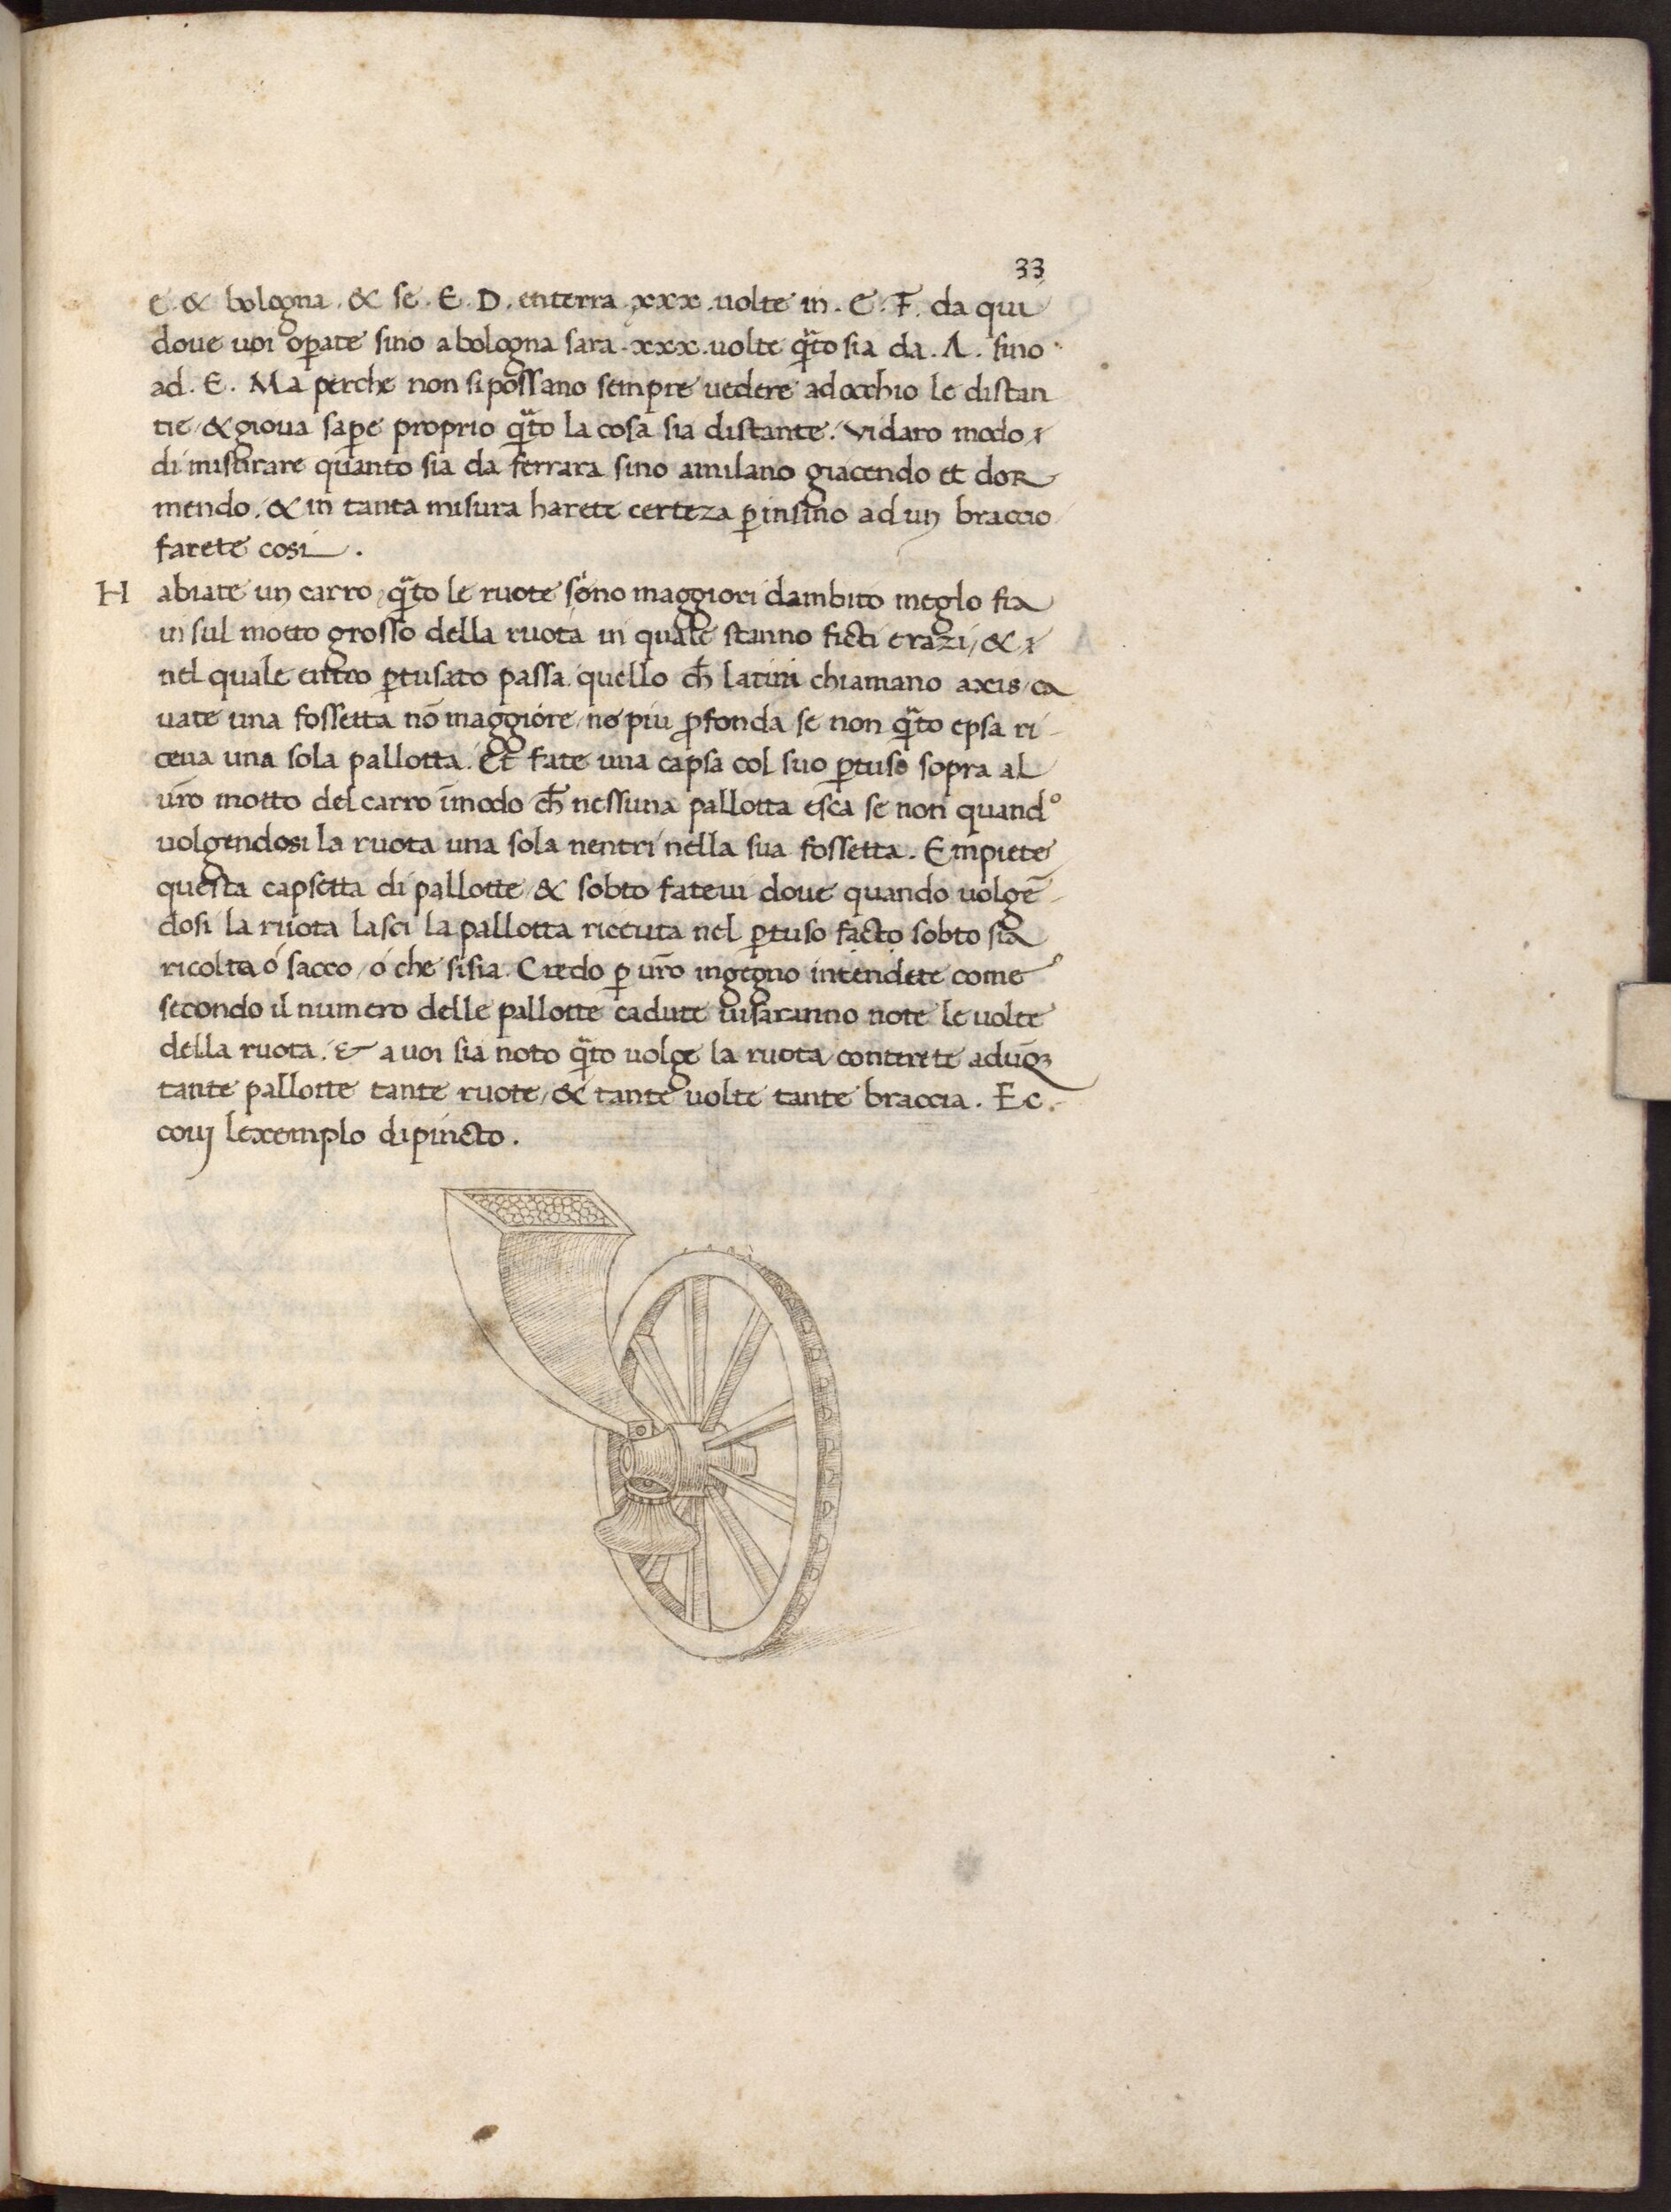 33
e. & bologna. & se. E. D. enterra. xxx. uolte in. C. F. da qui
doue uoi oꝑate sino a bologna sara. xxx. uolte q̃to sia da. A. sino
ad. E. Ma perche non si possano sempre uedere ad occhio le distan
tie / & gioua saꝑe proprio q̃to la cosa sia distante. vi daro modo
di misurare quanto sia da ferrara sino amilano giacendo et dor
mendo. & in tanta misura harete certeza ꝑ insino ad un braccio
farete cosi.
H abiate un carro / q̃to le ruote sono maggiori dambito meglo fia
in sul motto grosso della ruota in quale stanno ficti e razi / &
nel quale entro ꝑtusato passa quello ch̄ latini chiamano axis / ca
uate una fossetta nō maggiore / ne piu ꝓfonda se non q̃to epsa ri-
ceua una sola pallotta. Et fate una capsa col suo ꝑtuso sopra al
ur̄o motto del carro īmodo ch̄ nessuna pallotta esca se non quand°
uolgendosi la ruota una sola nentri nella sua fossetta. Empiete
questa capsetta di pallotte / & sobto fateui doue quando uolgē-
dosi la ruota lasci la pallotta riceuta nel ꝑtuso facto sobto sia
ricolta ó sacco / ó che si sia. Credo ꝑ ur̄o ingegno intendete come
secondo il numero delle pallotte cadute ui saranno note le uolte
della ruota. & a uoi sia noto q̃to uolge la ruota / conterete adūq3
tante pallotte tante ruote / & tante uolte tante braccia. Ec-
coui lexemplo dipincto.